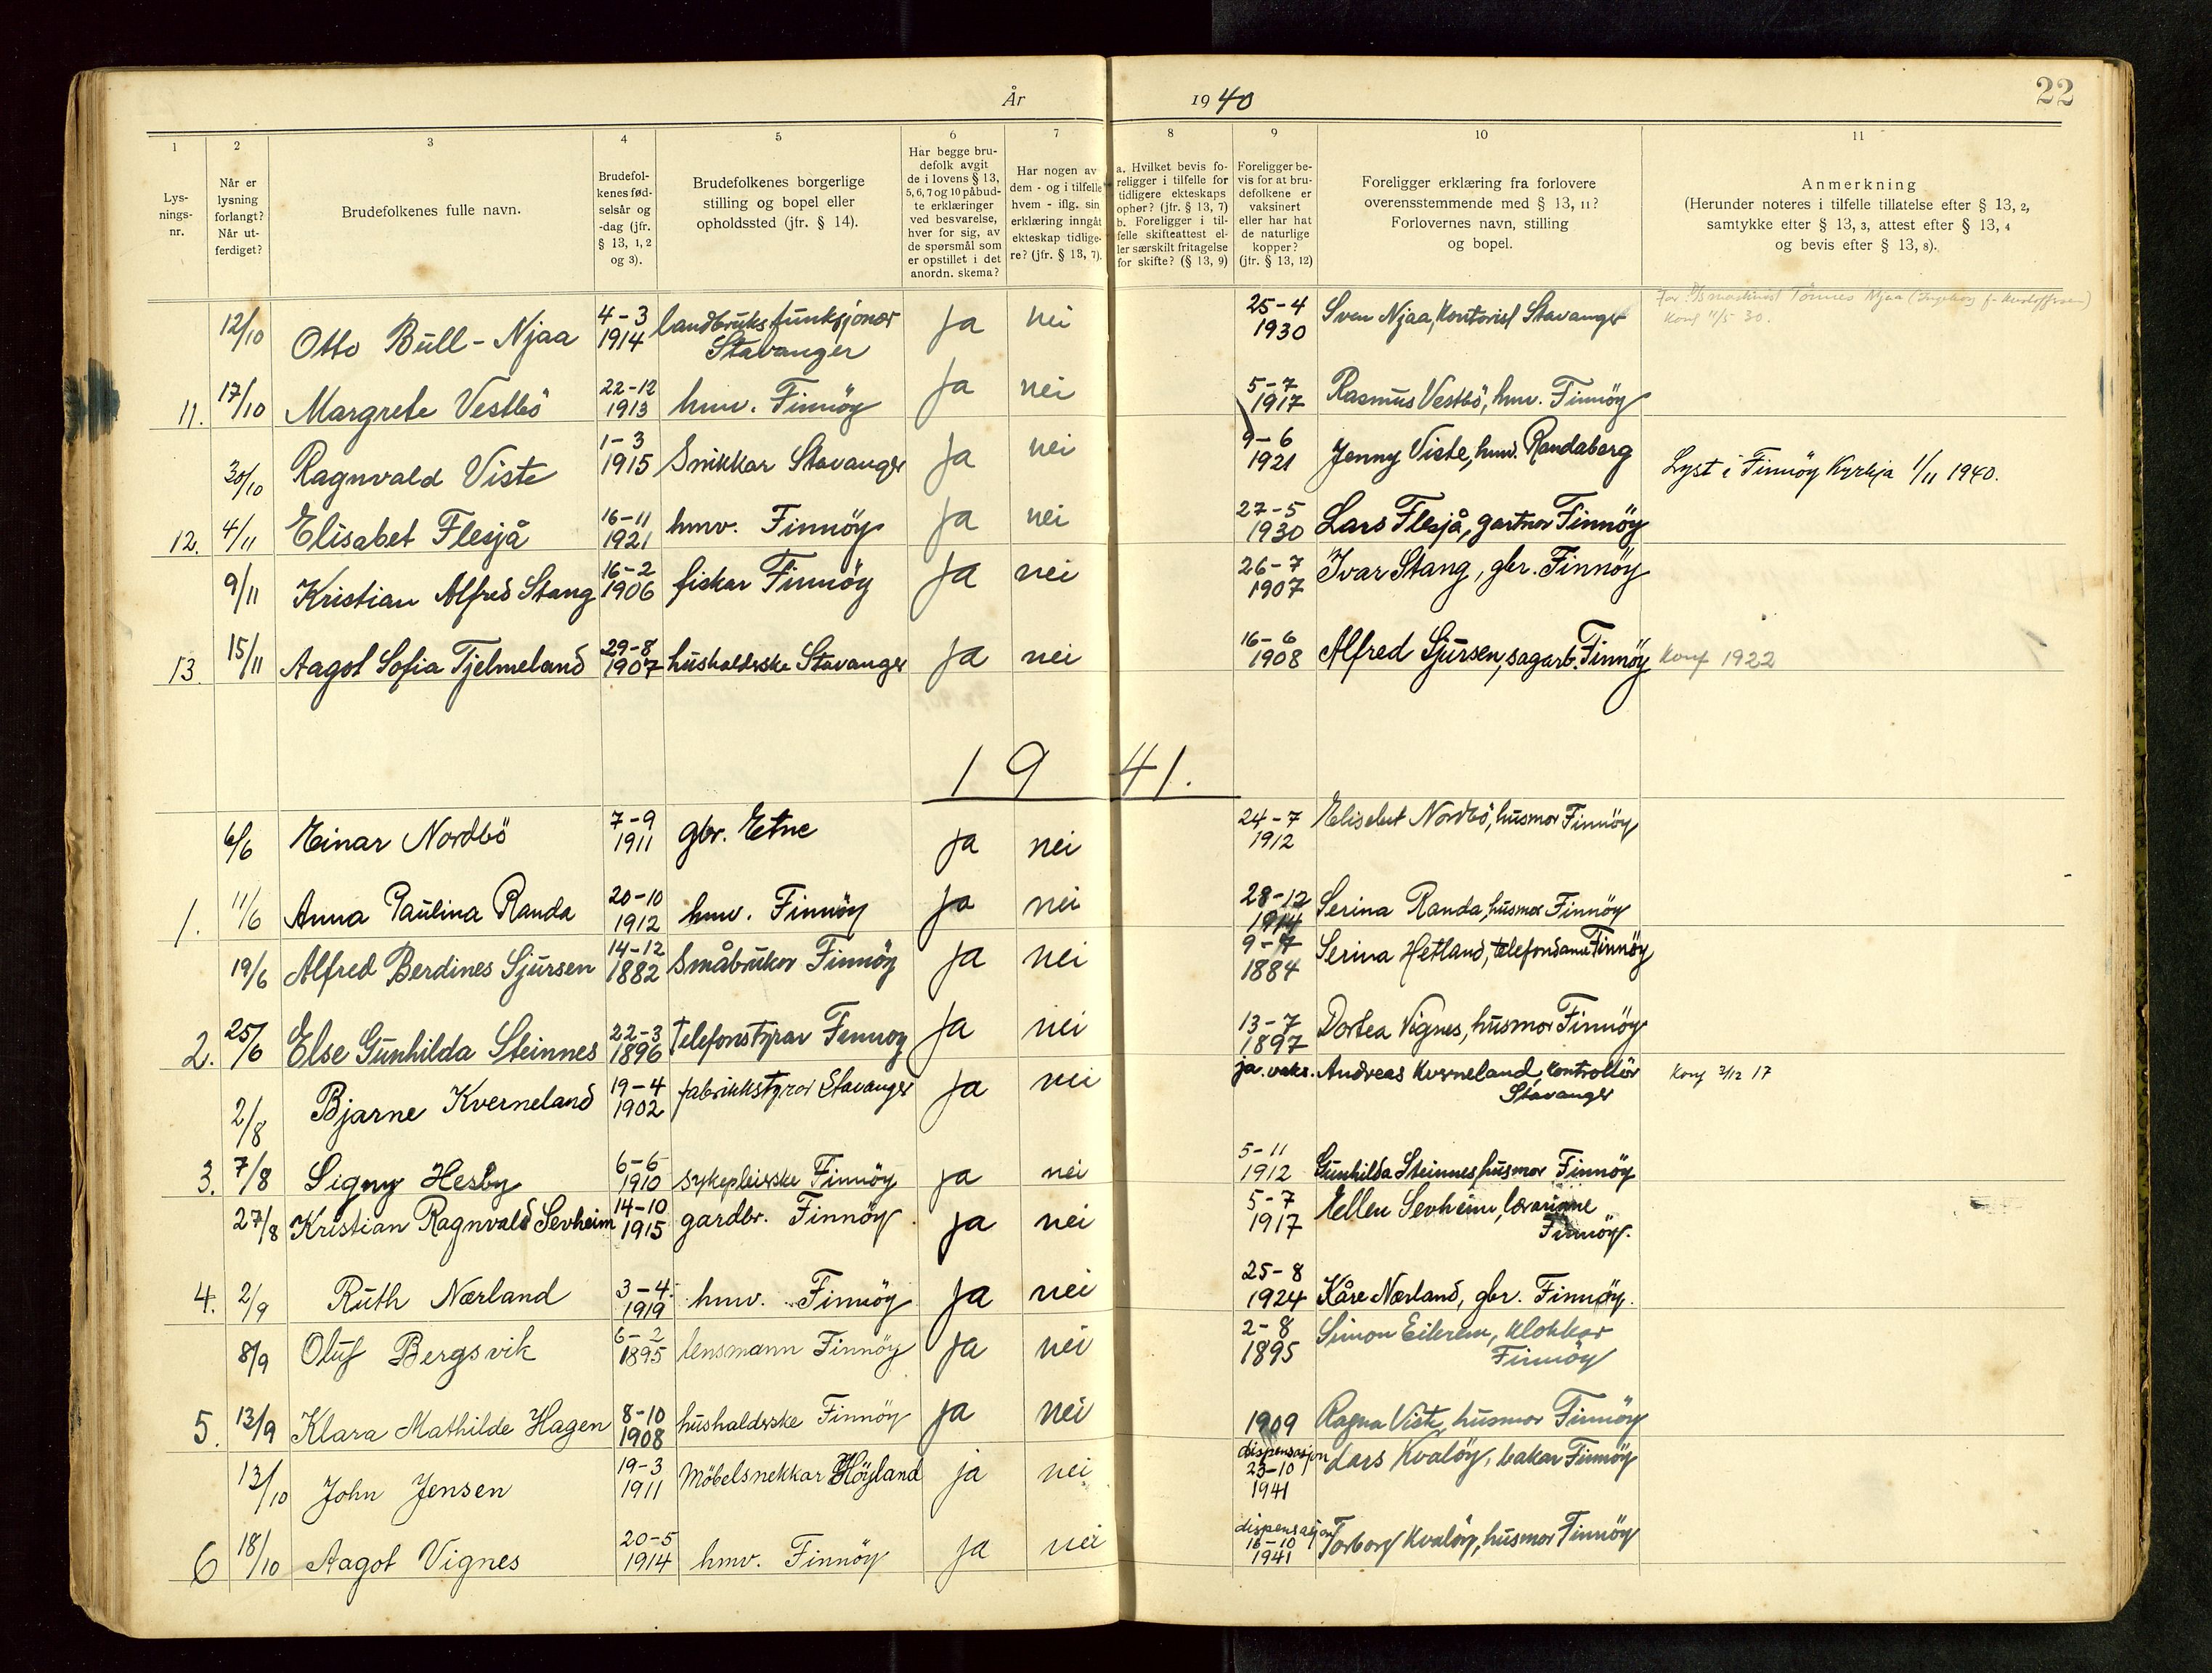 År 1940
22
1
2
3
4
5
6
7
8
9
10
11
Lysnings-
nr.
Når er
lysning
forlangt?
Når ut-
ferdiget?
Brudefolkenes fulle navn.
Brudefol-
kenes fød-
selsår og
-dag (jfr.
§ 13, 1, 2
og 3).
Brudefolkenes borgerlige
stilling og bopel eller
opholdssted (jfr. § 14).
Har begge bru-
defolk avgit
de i lovens § 13,
5, 6, 7 og 10 påbud-
te erklæringer
ved besvarelse,
hver for sig, av
de spørsmål som
er opstillet i det
anordn. skema?
Har nogen av
dem - og i tilfelle
hvem - iflg. sin
erklæring inngåt
ekteskap tidlige-
re? (jfr. § 13, 7).
a. Hvilket bevis fo-
religger i tilfelle for
tidligere ekteskaps
ophør? (jfr. § 13, 7)
b. Foreligger i til-
felle skifteattest el-
ler særskilt fritagelse
for skifte? (§ 13, 9)
Foreligger be-
vis for at bru-
defolkene er
vaksinert
eller har hat
de naturlige
kopper?
(jfr. § 13, 12)
Foreligger erklæring fra forlovere
overensstemmende med § 13, 11?
Forlovernes navn, stilling
og bopel.
Anmerkning
(Herunder noteres i tilfelle tillatelse efter § 13, 2,
samtykke efter § 13, 3, attest efter § 13, 4
og bevis efter § 13, 8).
12/10 Otto Bull-Njaa 4-3 1914 landbruksfunksjonær Stavanger Ja nei 25-4 1930 Sven Njaa, Kontorist Stavanger Tønnes Njaa
Konf 11/5 30.
11. 17/10 Margrete Vestbö 22-12 1913 hmv. Finnöy Ja nei 5-7 1917 Rasmus Vestbö, hmv. Finnöy
30/10 Ragnvald Viste 1-3 1915 Snikkar Stavanger Ja nei 9-6 1921 Jenny Viste, hmv. Randaberg Lyst i Finnöy Kyrkja 1/11 1940.
12. 4/11 Elisabet Flesjå 16-11 1921 hmv. Finnöy Ja nei 27-5 1930 Lars Flesjå, gartner Finnöy
9/11 Kristian Alfred Stang 16-2 1906 fiskar Finnöy Ja nei 26-7 1907 Ivar Stang, gbr. Finnöy
13. 15/11 Aagot Sofia Tjelmeland 29-8 1907 husholderske Stavanger Ja nei 16-6 1908 Alfred Sjursen, sagarb. Finnöy Konf 1922
1941.
6/6 Einar Nordbö 7-9 1911 gbr. Etne Ja nei 24-7 1912 Elisabet Nordbö, husmor Finnöy
1. 11/6 Anna Paulina Randa 20-10 1912 hmv. Finnöy Ja nei 28-12 1914 Serina Randa, husmor Finnöy
19/6 Alfred Berdines Sjursen 14-12 1882 Småbruker Finnöy Ja nei 9-7 1884 Serina Hetland, telefondame Finnöy
2. 25/6 Else Gunhilda Steinnes 22-3 1896 telefonstyrar Finnoy Ja nei 13-7 1897 Dortea Vignes, husmor Finnöy
2/8 Bjarne Kverneland 19-4 1902 fabrikkstyrar Stavanger Ja nei ja. vaks. Andreas Kverneland, kontrollör Stavanger Konf 2/12 17
3. 7/8 Signy Hesby 6-6 1910 sykepleierske Finnöy Ja nei 5-11 1912 Gunhilda Steinnes, husmor Finnöy
27/8 Kristian Ragnvald Sevheim 14-10 1915 gardbr. Finnöy. Ja nei 5-7 1917 Ellen Sevheim, lærarinne Finnöy.
4. 2/9 Ruth Nærland 3-4 1919 hmv. Finnöy Ja nei 25-8 1924 Kåre Nærland, gbr. Finnöy.
8/9 Oluf Bergsvik 6-2 1895 lensmann Finnöy Ja nei 2-8 1895 Simon Eikrem, Klokkar Finnöy
5. 13/9 Klara Mathilde Hagen 8-10 1908 husholderske Finnöy Ja nei 1909 Ragna Viste, husmor Finnöy
13/10 John Jensen 19-3 1911 Möbelsnekkar Höyland ja nei dispensasjon 23-10 1941 Lars Kvalöy, bakar Finnöy
6 18/10 Aagot Vignes 20-5 1914 hmv. Finnöy Ja nei dispensasjon 16-10 1941 Torborg Kvalöy, husmor Finnöy